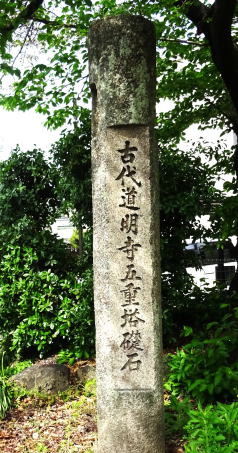 古代道明寺五重塔礎石